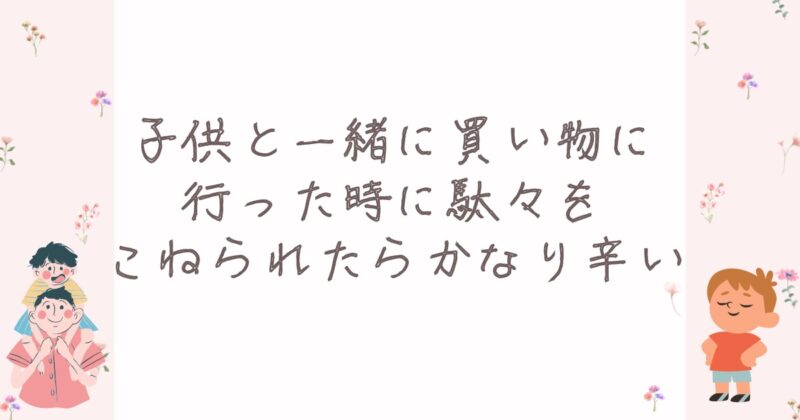 子供と一緒に買い物に
行った時に駄々を
こねられたらかなり辛い